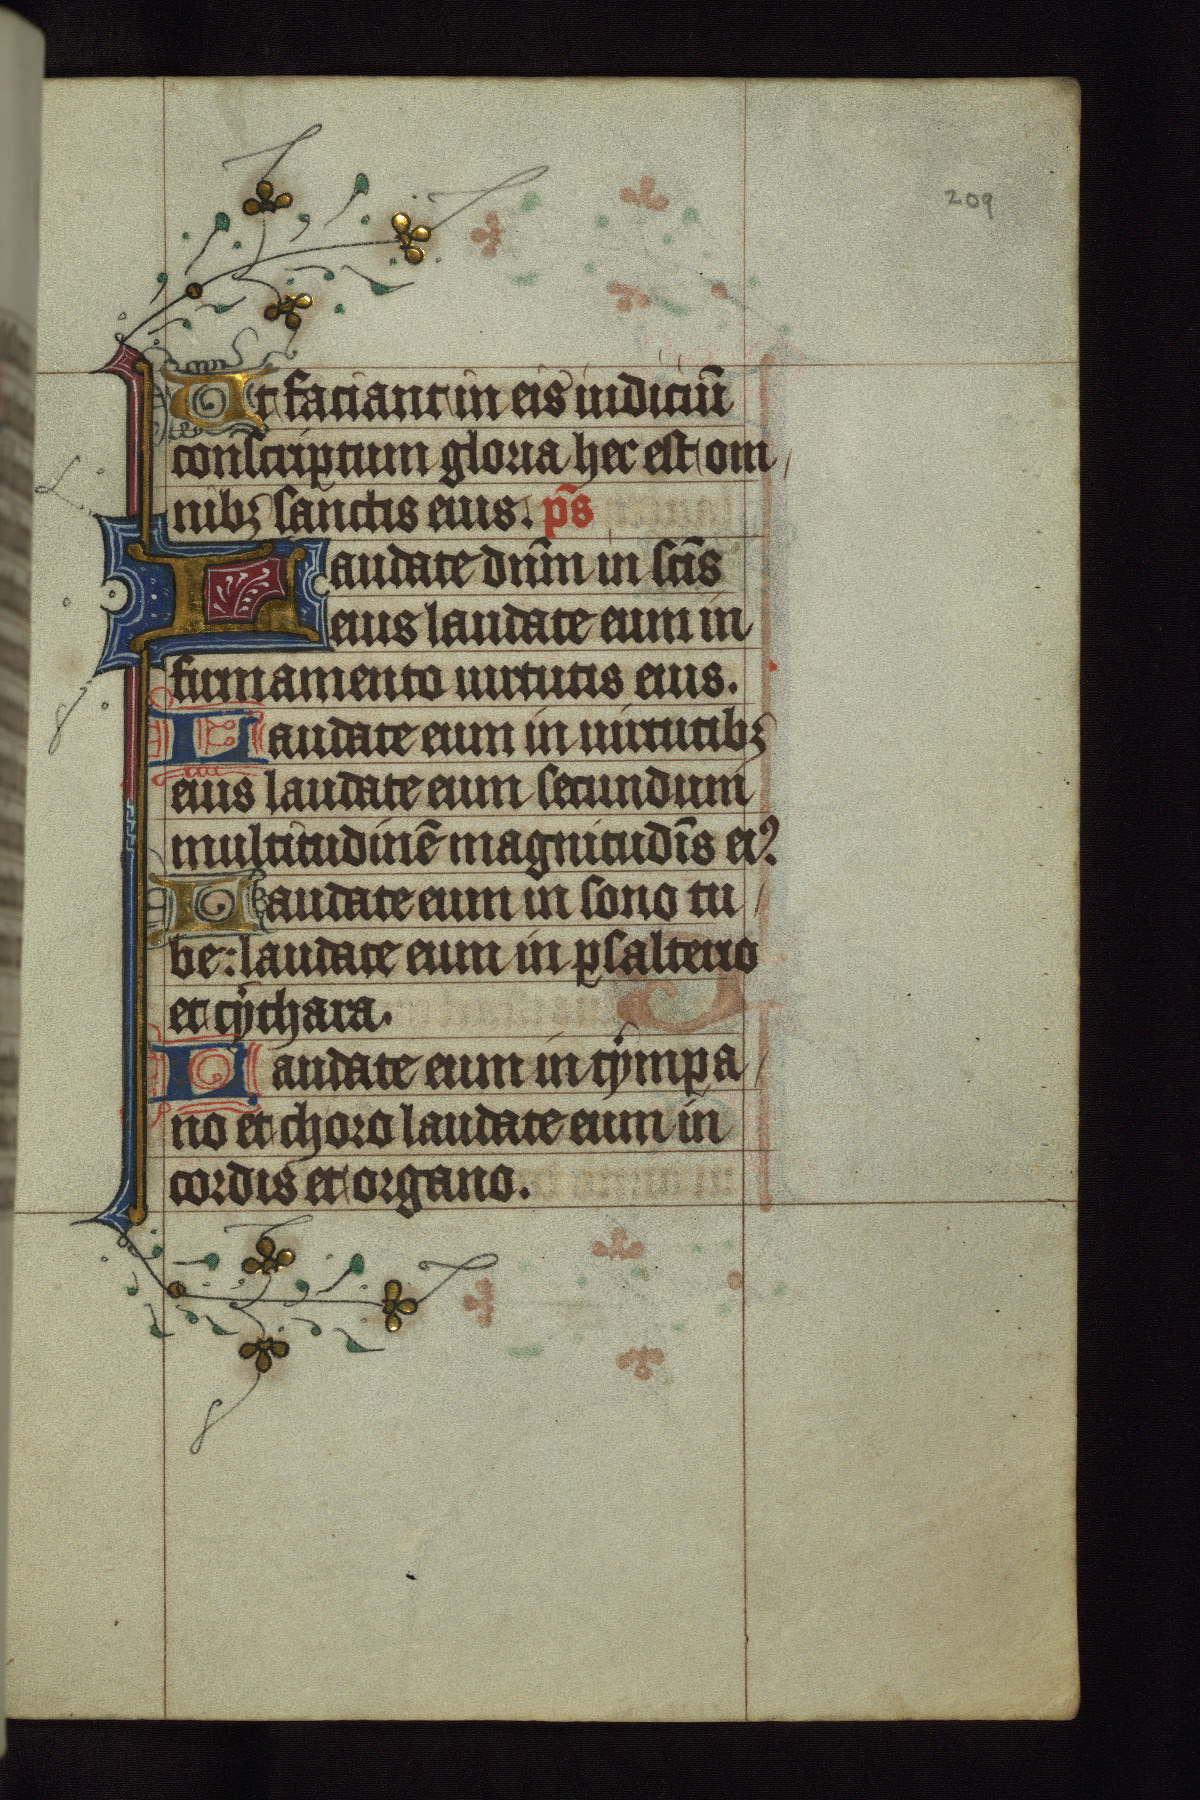 209
Ut faciant in eis iudiciū
conscriptum gloria hec est om
nibꝫ sanctis eius. p̄s
Laudate dn̄m in sc̄is
eius laudate eum in
firmamento uirtutis eius.
Laudate eum in uirtutibꝫ
eius laudate eum secundum
multitudinē magnitudīs eiꝰ.
Laudate eum in sono tu
be: laudate eum in psalterio
et cythara.
Laudate eum in tympa
no et choro laudate eum in
cordis et organo.